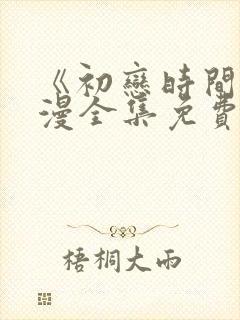 《初戀時間
漫全集免費
梧桐大雨